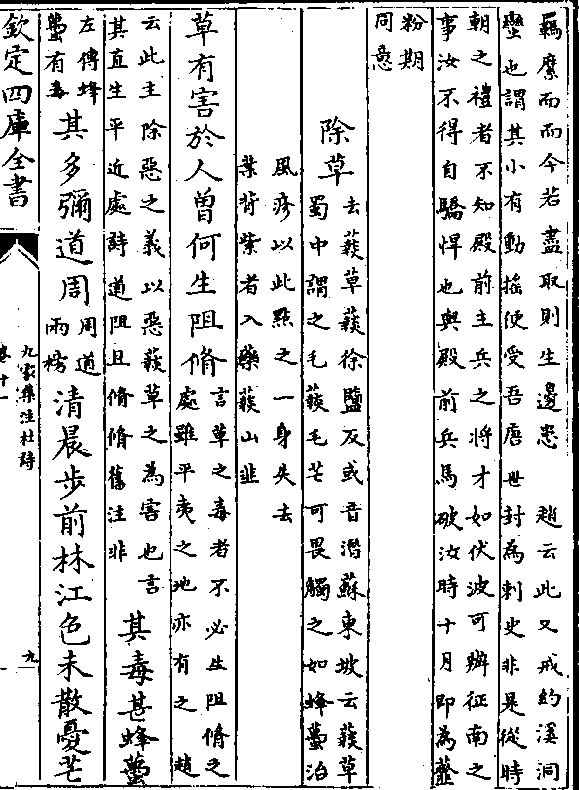 羈縻而而今若盡取則生邊患　趙云此又戒約溪洞
蠻也謂其小有動摇便受吾唐世封為刺史非是從時
朝之禮者不知殿前主兵之將才如伏波可辦征南之
事汝不得自驕悍也與殿前兵馬破汝時十月即為虀
粉期
同意
除草
去䕭草䕭徐鹽反或音濳蘇東坡云䕭草
蜀中謂之毛䕭毛芒可畏觸之如蜂蠆治
風疹以此㸃之一身失去
葉背紫者入藥䕭山韭
草有害於人曽何生阻脩
言草之毒者不必生阻脩之
處雖平夷之地亦有之　趙
云此主除惡之義以惡䕭草之為害也言
其直生平近處詩道阻且脩脩舊注非
其毒甚蜂蠆
左傳蜂
蠆有毒
其多彌道周
周道
兩榜
清晨步前林江色未散憂芒
欽定四庫全書
九家集注杜詩
卷十一
九